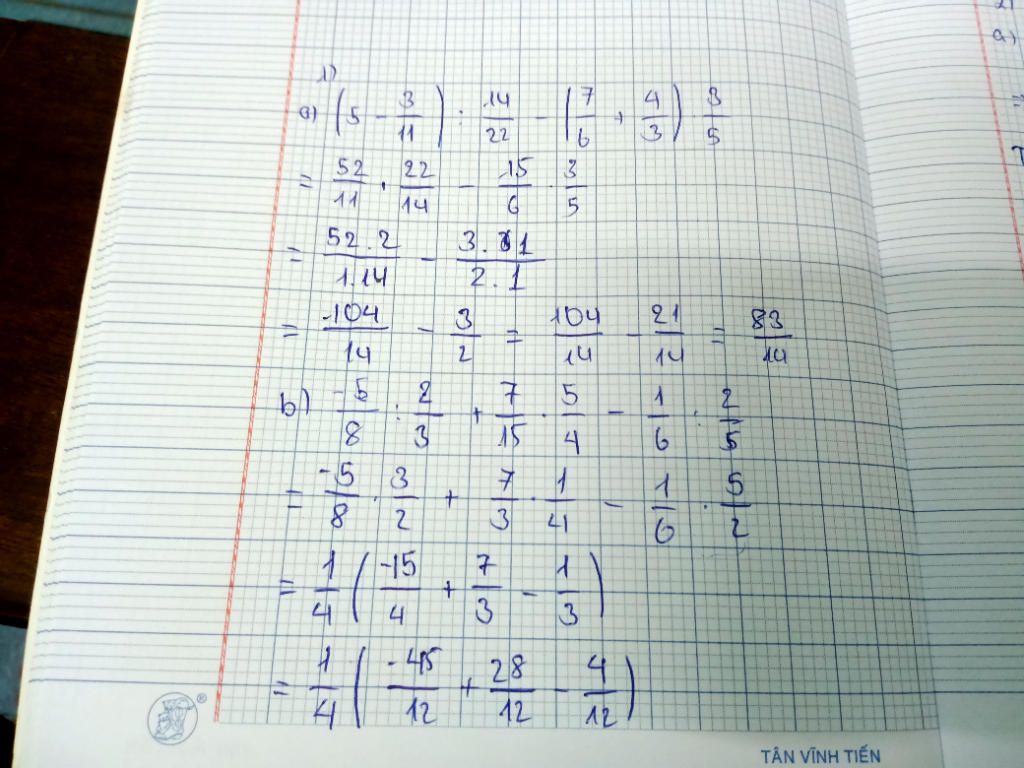 1)
a) (5 - 3/11) : 14/22 - (7/6 + 4/3) . 3/5
= 52/11 . 22/14 - 15/6 . 3/5
= 52.2/1.14 - 3.1/2.1
= 104/14 - 3/2 = 104/14 - 21/14 = 83/14
b) -5/8 : 2/3 + 7/15 . 5/4 - 1/6 : 2/5
= -5/8 . 3/2 + 7/3 . 1/4 - 1/6 . 5/2
= 1/4 (-15/4 + 7/3 - 1/3)
= 1/4 (-45/12 + 28/12 - 4/12)
TÂN VĨNH TIẾN
a)